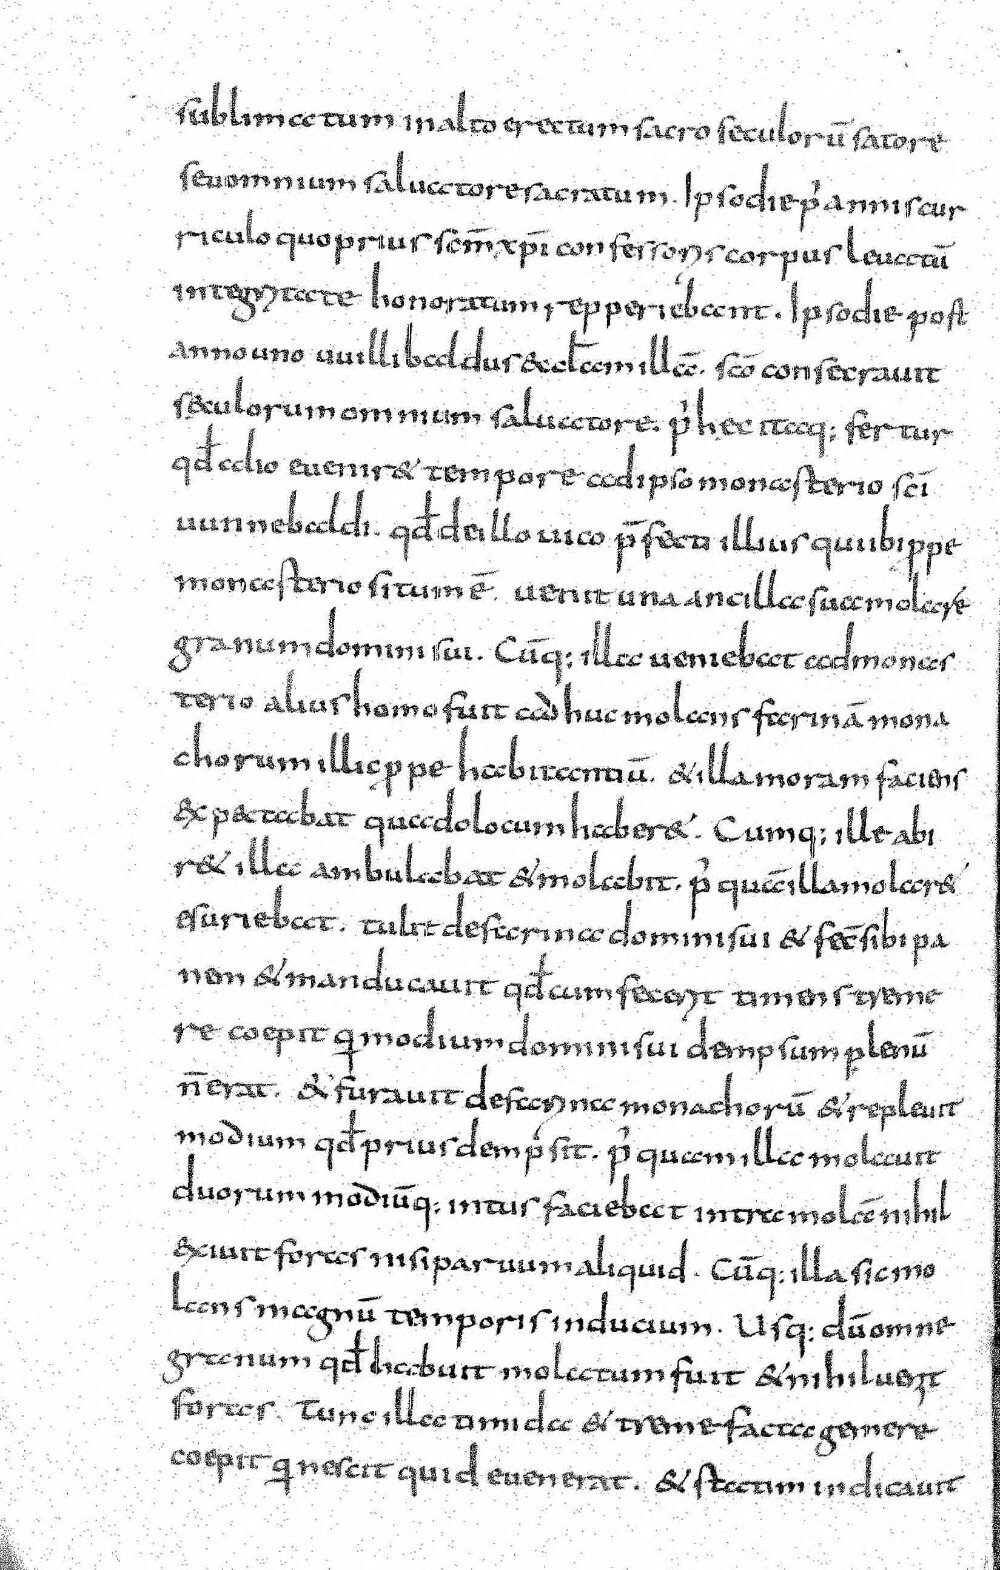 sublimatum in alto erectum sacro seculorū satore
seu omnium saluatore sacratum. Ipso die p̉ annis cur
riculo quo prius scm̄ xp̄i confessoris corpus leuatū
integritate honoratum repperiebant. Ipso die post
anno uno uuillibaldus & ecl̄am illā. scō consecrauit
seculorum omnium saluatore. p̉ hec itaq; fertur
qd̄ alio eueniret tempore ad ipso monasterio scī
uunnebaldi. qd̄ de illo uico p̄fecti illius qui ubi prope
monasterio situm ē. uenit una ancilla sua molare
granum domini sui. Cūq; illa ueniebat ad monas
terio alius homo fuit adhuc molans farinā mona
chorum illic prope habitantiū. & illa moram faciens
expectabat quando locum haberet. Cumq; ille abi
ret illa ambulabat & molabit. p̉ quā illa molaret
esuriebat. tulit de farina domini sui & fec̄ sibi pa
nem & manducauit qd̄ cum fecerit timens treme
re coepit qi modium domini sui dempsum plenū
n̄ erat. & furauit de farina monachorū & repleuit
modium qd̄ prius dempsit. p̉ quam illa molauit
duorum modiūq; intus faciebat intra molā nihil
exiuit foras nisi paruum aliquid. Cūq; illa sic mo
lans magnū temporis inducium. Usq; dū omne
granum qd̄ habuit molatum fuit & nihil uenit
foras. Tunc illa timida & treme facta gemere
coepit qi nescit quid euenerat. & statim indicauit